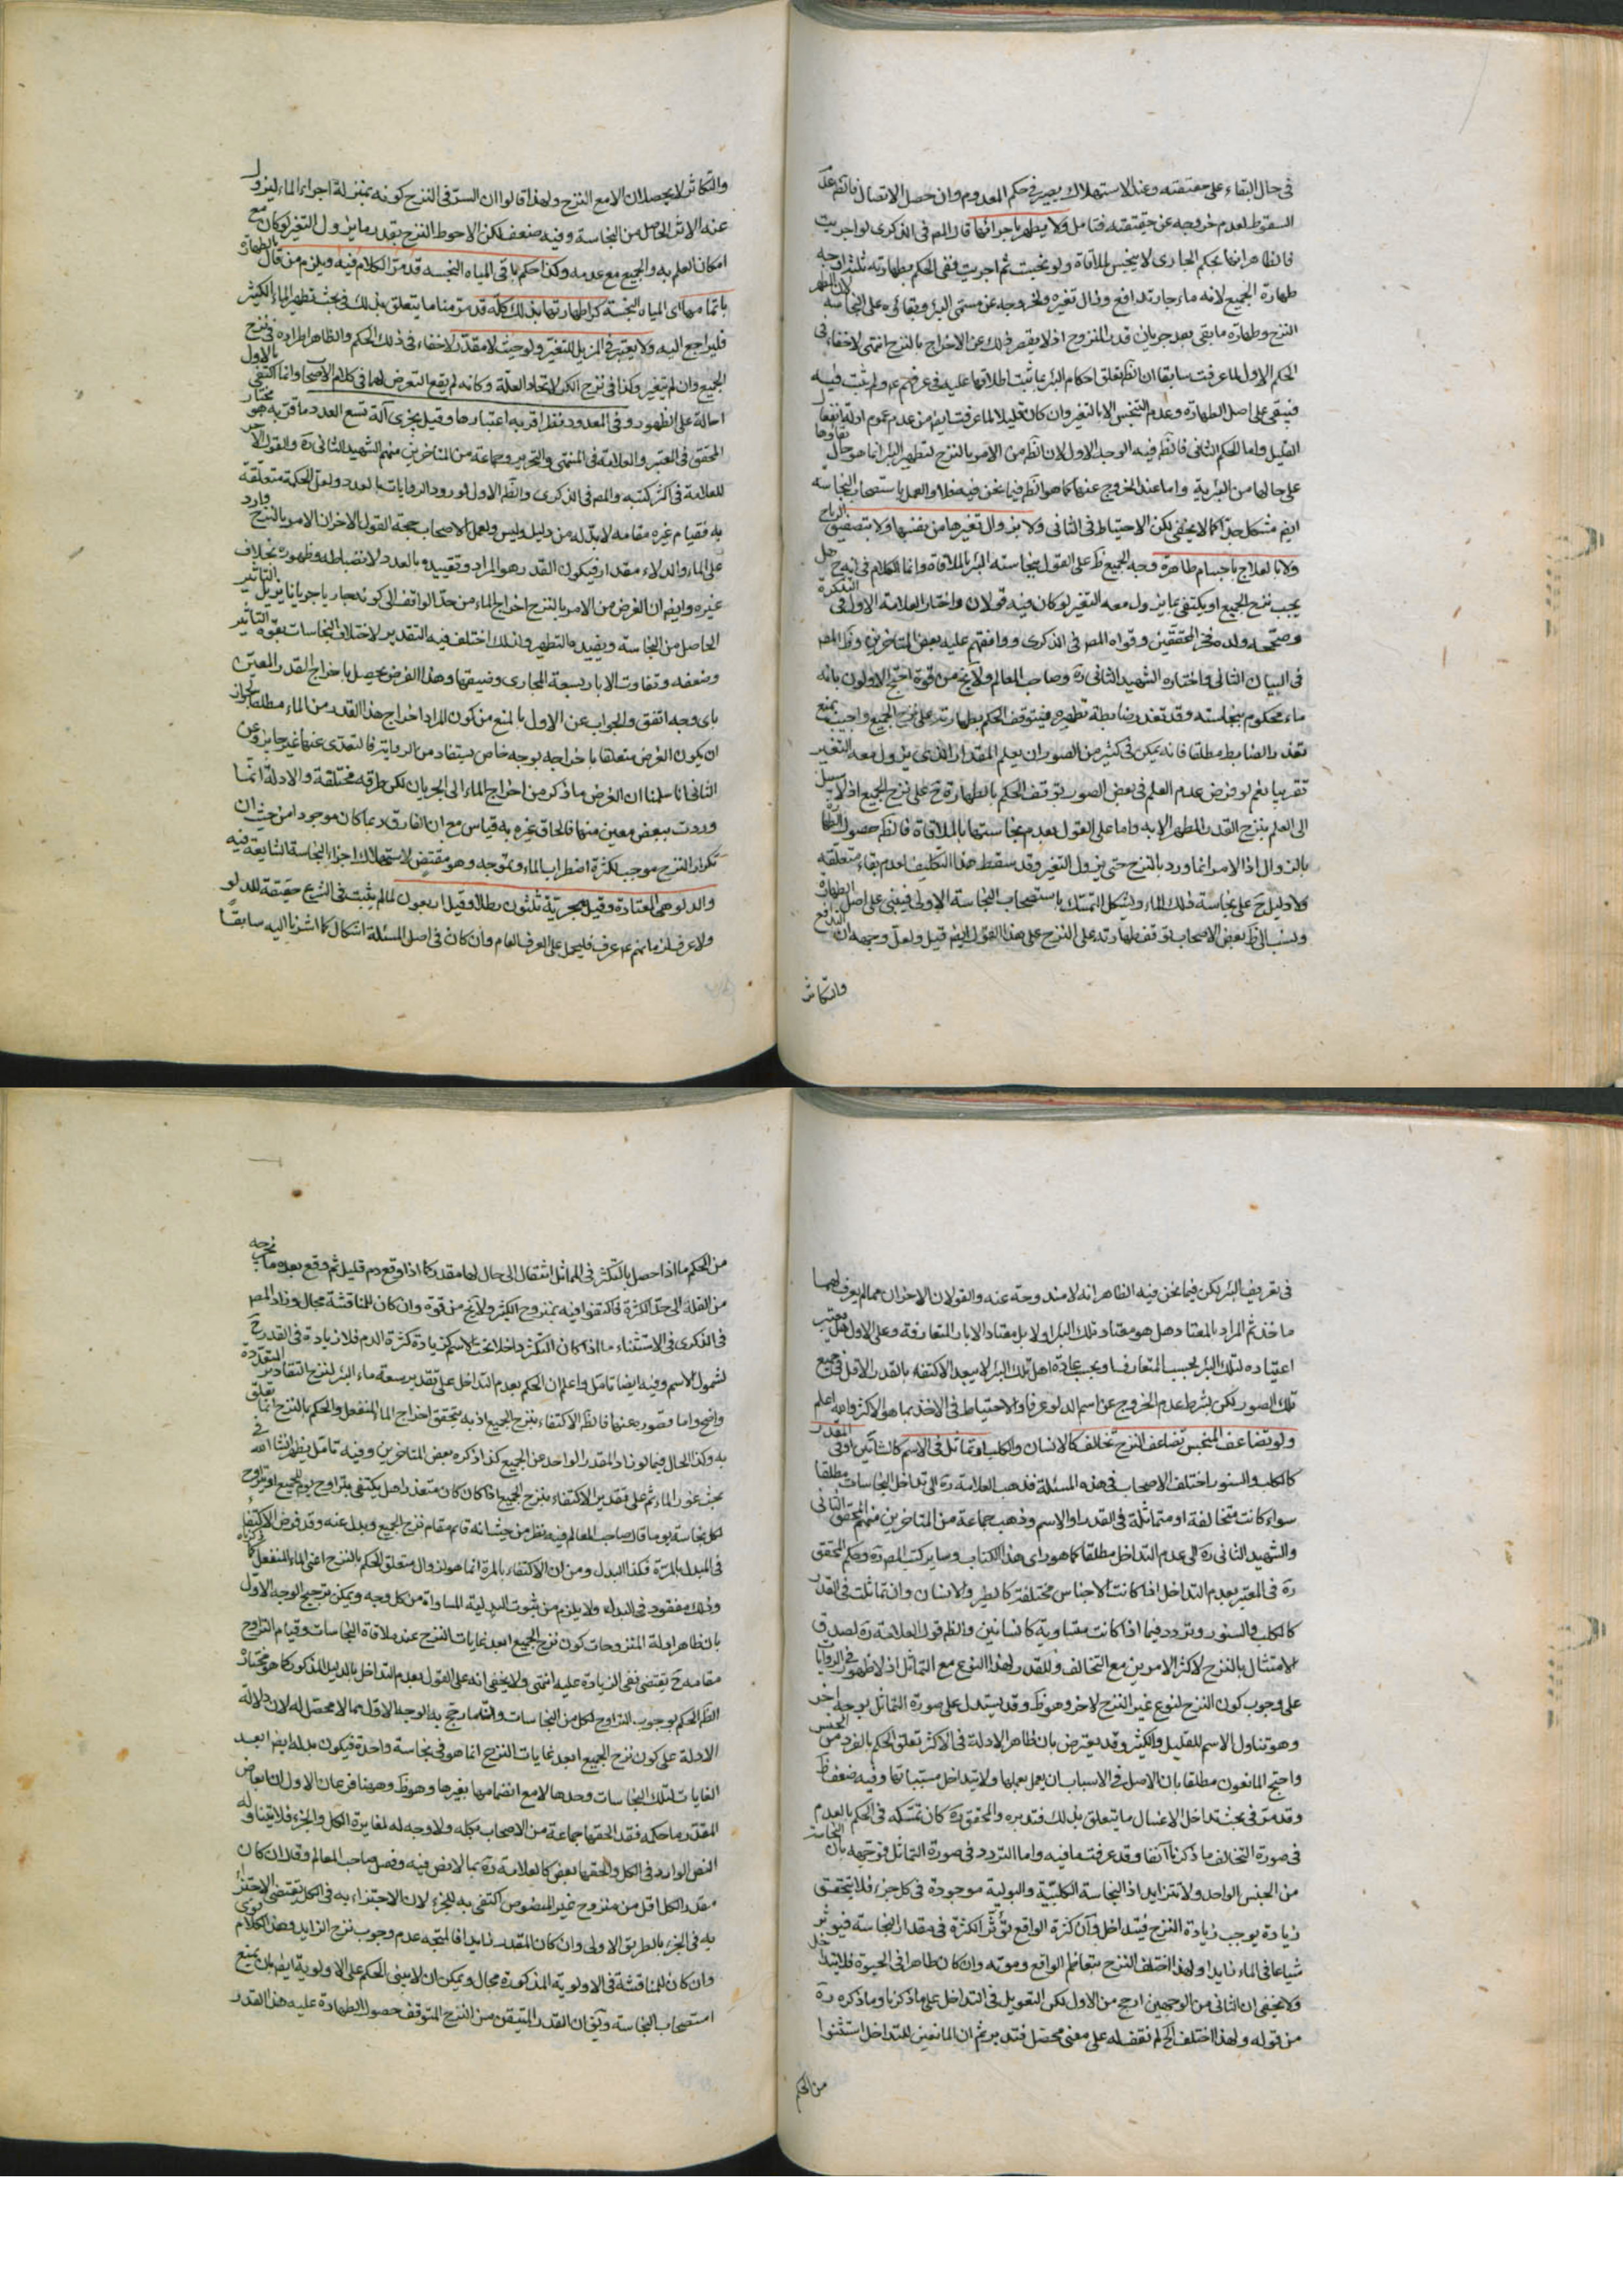 فى حال البقاء على حقيقته وعند الاستهلاك يصير فى حكم المعدوم وان حصل الاتصال فالظ عدم
السقوط لعدم خروجه عن حقيقته فتامل ولا يطهر باجرائها قال المص فى الذكرى لو اجريت
فالظاهر انها بحكم الجارى لا ينجس بالملاقاة ولو نجست ثم اجريت ففى الحكم بطهارته ثلثة اوجه
طهارة الجميع لانه ماء جار تدافع وزال تغيره ولخروجه عن مسمى البئر وبقائه على النجاسة لان المطهر
النزح وطهارة ما بقى بعد جريان قدر المنزوح اذ لا يقصر ذلك عن الاخراج بالنزح انتهى لا خفاء فى
الحكم الاول لما عرفت سابقا ان الظ تعلق احكام البئر بما ثبت اطلاقها عليه فى عرفهم ع ولم يثبت فيه
فيبقى على اصل الطهارة وعدم التنجس الا بالتغير وان كان قليلا لما عرفت ايضا من عدم عموم ادلة انفعال
القليل واما الحكم الثانى فالظ فيه الوجه الاول لان الظ من الامر بالنزح لتطهير البئر انما هو حال بقاؤها
على حالها من البئرية واما عند الخروج عنها كما هو الظ فيما نحن فيه فلا والعمل باستصحاب النجاسة
ايضا مشكل جدا كما لا يخفى لكن الاحتياط فى الثانى ولا بزوال تغيرها من نفسها ولا بتصفيق الرياح
ولا بالعلاج باجسام طاهرة وجه الجميع ظ على القول بنجاسة البئر بالملاقاة وانما الكلام فى انه ح هل
يجب نزح الجميع او يكتفى بما يزول معه التغير لو كان فيه قولان واختار العلامة الاول فى التذكرة
وصححه ولده فخر المحققين وقواه المص فى الذكرى ووافقهم عليه بعض المتاخرين وظ المص
فى البيان الثانى واختاره الشهيد الثانى ره وصاحب المعالم ولا يخ من قوة احتج الاولون بانه
ماء محكوم بنجاسته وقد تعذر ضابطة تطهيره فيتوقف الحكم بطهارته على نزح الجميع واجيب بمنع
تعذر الضابط مطلقا فانه يمكن فى كثير من الصور ان يعلم المقدار الذى يزول معه التغير
تقريبا نعم لو فرض عدم العلم فى بعض الصور توقف الحكم بالطهارة ح على نزح الجميع اذ لا سبيل
الى العلم بنزح القدر المطهر الا به واما على القول بعدم نجاستها بالملاقاة فالظ حصول الطهارة
بالزوال اذ الامر انما ورد بالنزح حتى يزول التغير وقد سقط هذا التكليف لعدم بقاء متعلقه
ولا دليل ح على نجاسة ذلك الماء ويشكل التمسك باستصحاب النجاسة الاولى فيبقى على اصل الطهارة
ونسب الى ظ بعض الاصحاب توقف طهارته على النزح على هذا القول ايضا قيل ولعل وجهه ان التدافع
والتكاثر
والتكاثر لا يحصلان الا مع النزح ولهذا قالوا ان السر فى النزح كونه بمنزلة اجراء الماء ليزول
عنه الاثر الحاصل من النجاسة وفيه ضعف لكن الاحوط النزح بقدر ما يزول التغير لو كان مع
امكان العلم به والجميع مع عدمه وكذا حكم باقى المياه النجسة قد مر الكلام فيه ويلزم من قال بالطهارة
باتمامها اى المياه النجسة كرا طهارتها بذلك كله قد مر منا ما يتعلق بذلك فى بحث تطهير الماء الكثير
فليراجع اليه ولا يعتبر فى المزيل للتغير ولو حيث لا مقدر لا خفاء فى ذلك الحكم والظاهر اطراده فى نزح
الجميع وان لم يتغير وكذا فى نزح الكر لاتحاد العلة وكانه لم يقع التعرض لهما فى كلام الاصحاب وانما اكتفى بالاول
احالة على الظهور وفى المعدود نظر اقربه اعتبارها وقيل يجزى آلة تسع العدد ما قربه هو مختار
المحقق فى المعتبر والعلامة فى المنتهى والتحرير وجماعة من المتاخرين منهم الشهيد الثانى ره والقول الآخر
للعلامة فى اكثر كتبه والمص فى الذكرى والظ الاول لورود الروايات بالعدد ولعل الحكمة متعلقة
به فقيام غيره مقامه لا بد له من دليل وليس ولعمل الاصحاب حجة القول الاخر ان الامر بالنزح وارد
على الماء والدلاء مقدار فيكون القدر هو المراد وتقييده بالعدد لانضباطه وظهوره بخلاف
غيره وايضا ان الغرض من الامر بالنزح اخراج الماء من حد الواقف الى كونه جاريا جريانا يزيل التاثير
الحاصل من النجاسة ويفيده التطهير ولذلك اختلف فيه التقدير لاختلاف النجاسات بقوة التاثير
وضعفه وتفاوت الابار بسعة المجارى وضيقها وهذا الغرض يحصل باخراج القدر المعين
باى وجه اتفق والجواب عن الاول بالمنع من كون المراد اخراج هذا القدر من الماء مطلقا لجواز
ان يكون الغرض متعلقا باخراجه بوجه خاص يستفاد من الرواية فالتعدى عنها غير جايز وعن
الثانى انا سلمنا ان الغرض ما ذكر من اخراج الماء الى الجريان لكن طرقه مختلفة والادلة انما
وردت ببعض معين منها فالحاق غيره به قياس مع ان الفارق ربما كان موجودا من حيث ان
تكرار النزح موجب لكثرة اضطراب الماء وتموجه وهو مقتض لاستهلاك اجزاء النجاسة الشايعة فيه
والدلو هى المعتادة وقيل هجرية ثلثون رطلا وقيل اربعون لما لم يثبت فى الشرع حقيقة للدلو
ولا عرف لزمانهم ع عرف فليحمل على العرف العام وان كان فى اصل المسئلة اشكال كما اشرنا اليه سابقا
فى تعريف البئر لكن فيما نحن فيه الظاهر انه لا مندوحة عنه والقولان الاخران مما لم يعرف لهما
ماخذ ثم المراد بالمعتاد هل هو معتاد تلك البئر او لا بل معتاد الابار المتعارفة وعلى الاول هل يعتبر
اعتياده لتلك البئر بحسب المتعارف او بحسب عادة اهل تلك البئر لا يبعد الاكتفاء بالقدر الاقل فى جميع
تلك الصور لكن بشرط عدم الخروج عن اسم الدلو عرفا والاحتياط فى الاخذ بما هو الاكثر والله اعلم
ولو تضاعف المنجس تضاعف النزح تخالف كالانسان والكلب او تماثل فى الاسم كشاتين او فى المقدر
كالكلب والسنور اختلف الاصحاب فى هذه المسئلة فذهب العلامة ره الى تداخل النجاسات مطلقا
سواء كانت متخالفة او متماثلة فى القدر او الاسم وذهب جماعة من المتاخرين منهم المحقق الثانى
والشهيد الثانى ره الى عدم التداخل مطلقا كما هو راى هذا الكتاب وساير كتب المص ره وحكم المحقق
ره فى المعتبر بعدم التداخل اذا كانت الاجناس مختلفة كالطير والانسان وان تماثلت فى القدر
كالكلب والسنور وتردد فيما اذا كانت متساوية كانسانين والظ قول العلامة ره لصدق
الامتثال بالنزح لاكثر الامرين مع التخالف وللقدر لهذا النوع مع التماثل اذ لا ظهور فى الروايات
على وجوب كون النزح لنوع غير النزح لاخر وهو ظ وقد يستدل على صورة التماثل بوجه اخر
وهو تناول الاسم للقليل والكثير وقد يعترض بان ظاهر الادلة فى الاكثر تعلق الحكم بالفرد من الجنس
واحتج المانعون مطلقا بان الاصل فى الاسباب ان يعمل بعملها ولا يتداخل مسبباتها وفيه ضعف ظ
وقد مر فى بحث تداخل الاغسال ما يتعلق بذلك فتدبره والمحقق ره كان تمسكه فى الحكم بالعدم
فى صورة التخالف ما ذكرنا آنفا وقد عرفت ما فيه واما التردد فى صورة التماثل فوجهه بان النجاسة
من الجنس الواحد ولا تتزايد اذ النجاسة الكلبية والبولية موجودة فى كل جزء فلا يتحقق
زيادة يوجب زيادة النزح فيتداخل وان كثرة الواقع يؤثر الكثرة فى مقدار النجاسة فيؤثر
شياعا فى الماء زايدا ولهذا اختلف النزح بتعاظم الواقع وموته وان كان طاهرا فى الحيوة فلا يتداخل
ولا يخفى ان الثانى من الوجهين ارجح من الاول لكن التعويل فى التداخل على ما ذكرنا وما ذكره ره
من قوله ولهذا اختلف الخ لم نقف له على معنى محصل فتدبر ثم ان المانعين للتداخل استثنوا
من الحكم
من الحكم ما اذا حصل بالتكثر فى المماثل انتقال الى حال لها مقدر كما اذا وقع دم قليل ثم وقع بعده ما يخرجه
من القلة الى حد الكثرة فاكتفوا فيه بمنزوح الكثير ولا يخ من قوة وان كان للمناقشة مجال وزاد المص
فى الذكرى فى الاستثناء ما اذا كان التكثر داخلا تحت الاسم كزيادة كثرة الدم فلا زيادة فى القدر ح
لشمول الاسم وفيه ايضا تامل واعلم ان الحكم بعدم التداخل على تقدير سعة ماء البئر لنزح المقادير المتعددة
واضح واما قصوره عنها فالظ الاكتفاء بنزح الجميع اذ به يتحقق اخراج الماء المنفعل والحكم بالنزح انما تعلق
به وكذا الحال فيما لو زاد المقدر الواحد عن الجميع كذا ذكره بعض المتاخرين وفيه تامل يظهر انشا الله فى
بحث غور الماء ثم على تقدير الاكتفاء بنزح الجميع اذا كان كان متعذرا هل يكتفى بتراوح يوم للجميع او تراوح
لكل نجاسة يوما قال صاحب المعالم فيه نظر من حيث انه قائم مقام نزح الجميع وبدل عنه وقد فرض الاكتفاء
فى المبدل بالمرة فكذا البدل ومن ان الاكتفاء بالمرة انما هو لزوال متعلق الحكم بالنزح اعنى الماء المنفعل كما ذكرناه
وذلك مفقود فى البدل ولا يلزم من ثبوت البدلية المساواة من كل وجه ويمكن ترجيح الوجه الاول
بان ظاهر ادلة المنزوحات كون نزح الجميع ابعد غايات النزح عند ملاقاة النجاسات وقيام التراوح
مقامه ح يقتضى نفى الزيادة عليه انتهى ولا يخفى انه على القول بعدم التداخل بالدليل المذكور كما هو مختاره
الظ الحكم بوجوب التراوح لكل من النجاسات وان ما رجح به الوجه الاول مما لا محصل له لان دلالة
الادلة على كون نزح الجميع ابعد غايات النزح انما هو فى نجاسة واحدة فيكون بدله ايضا ابعد
الغايات لتلك النجاسات وحدها لا مع انضمامها بغيرها وهو ظ وههنا فرعان الاول ان ابعاض
المقدر ما حكمه فقد الحقها جماعة من الاصحاب بكله ولا وجه له لمغايرة الكل والجزء فلا يتناوله
النص الوارد فى الكل والحقها بعض كالعلامة ره بما لا نص فيه وفصل صاحب المعالم وقال ان كان
مقدر الكل اقل من منزوح غير المنصوص اكتفى به للجزء لان الاجتزاء به فى الكل يقتضى الاجتزاء
به فى الجزء بالطريق الاولى وان كان المقدر زايدا فالمتجه عدم وجوب نزح الزايد وهذا الكلام قوى
وان كان للمناقشة فى الاولوية المذكورة مجال ويمكن ان لا يبنى الحكم على الاولوية ايضا بان يمنع
استصحاب النجاسة ويق ان القدر المتيقن من النزح المتوقف حصول الطهارة عليه هذا القدر